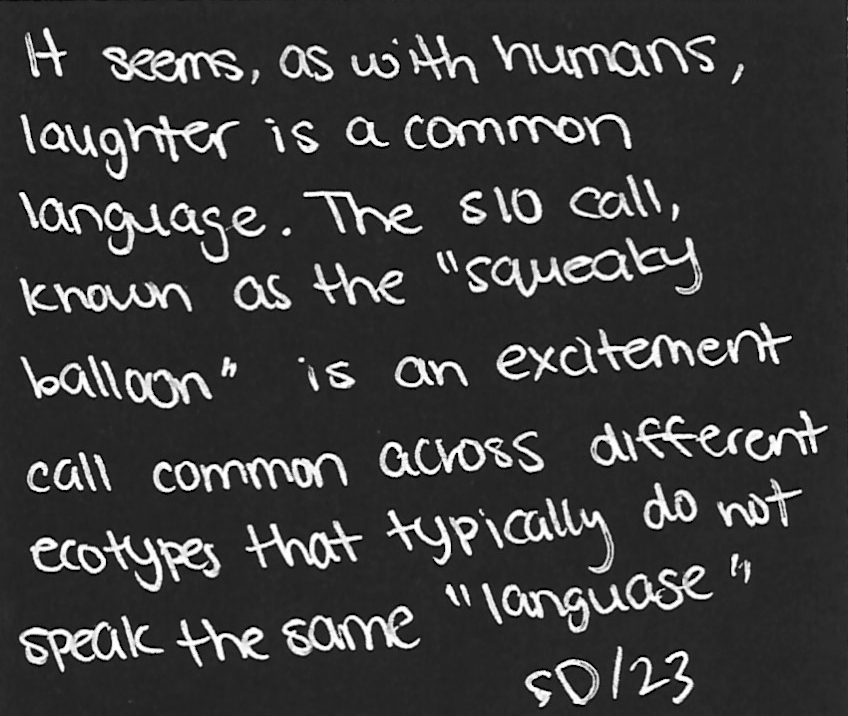 It seems, as with humans,
laughter is a common
language. The S10 call,
known as the "squeaky
balloon" is an excitement
call common across different
ecotypes that typically do not
speak the same "language"
SD/23